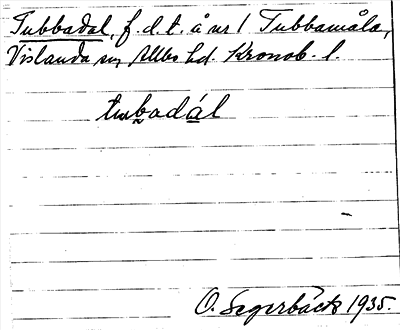 Tubbadal, f.d.t. å nr 1 Tubbamåla,
Vislanda sn, Allbo hd. Kronob. l.
tubadál
O. Segerbäck 1935.